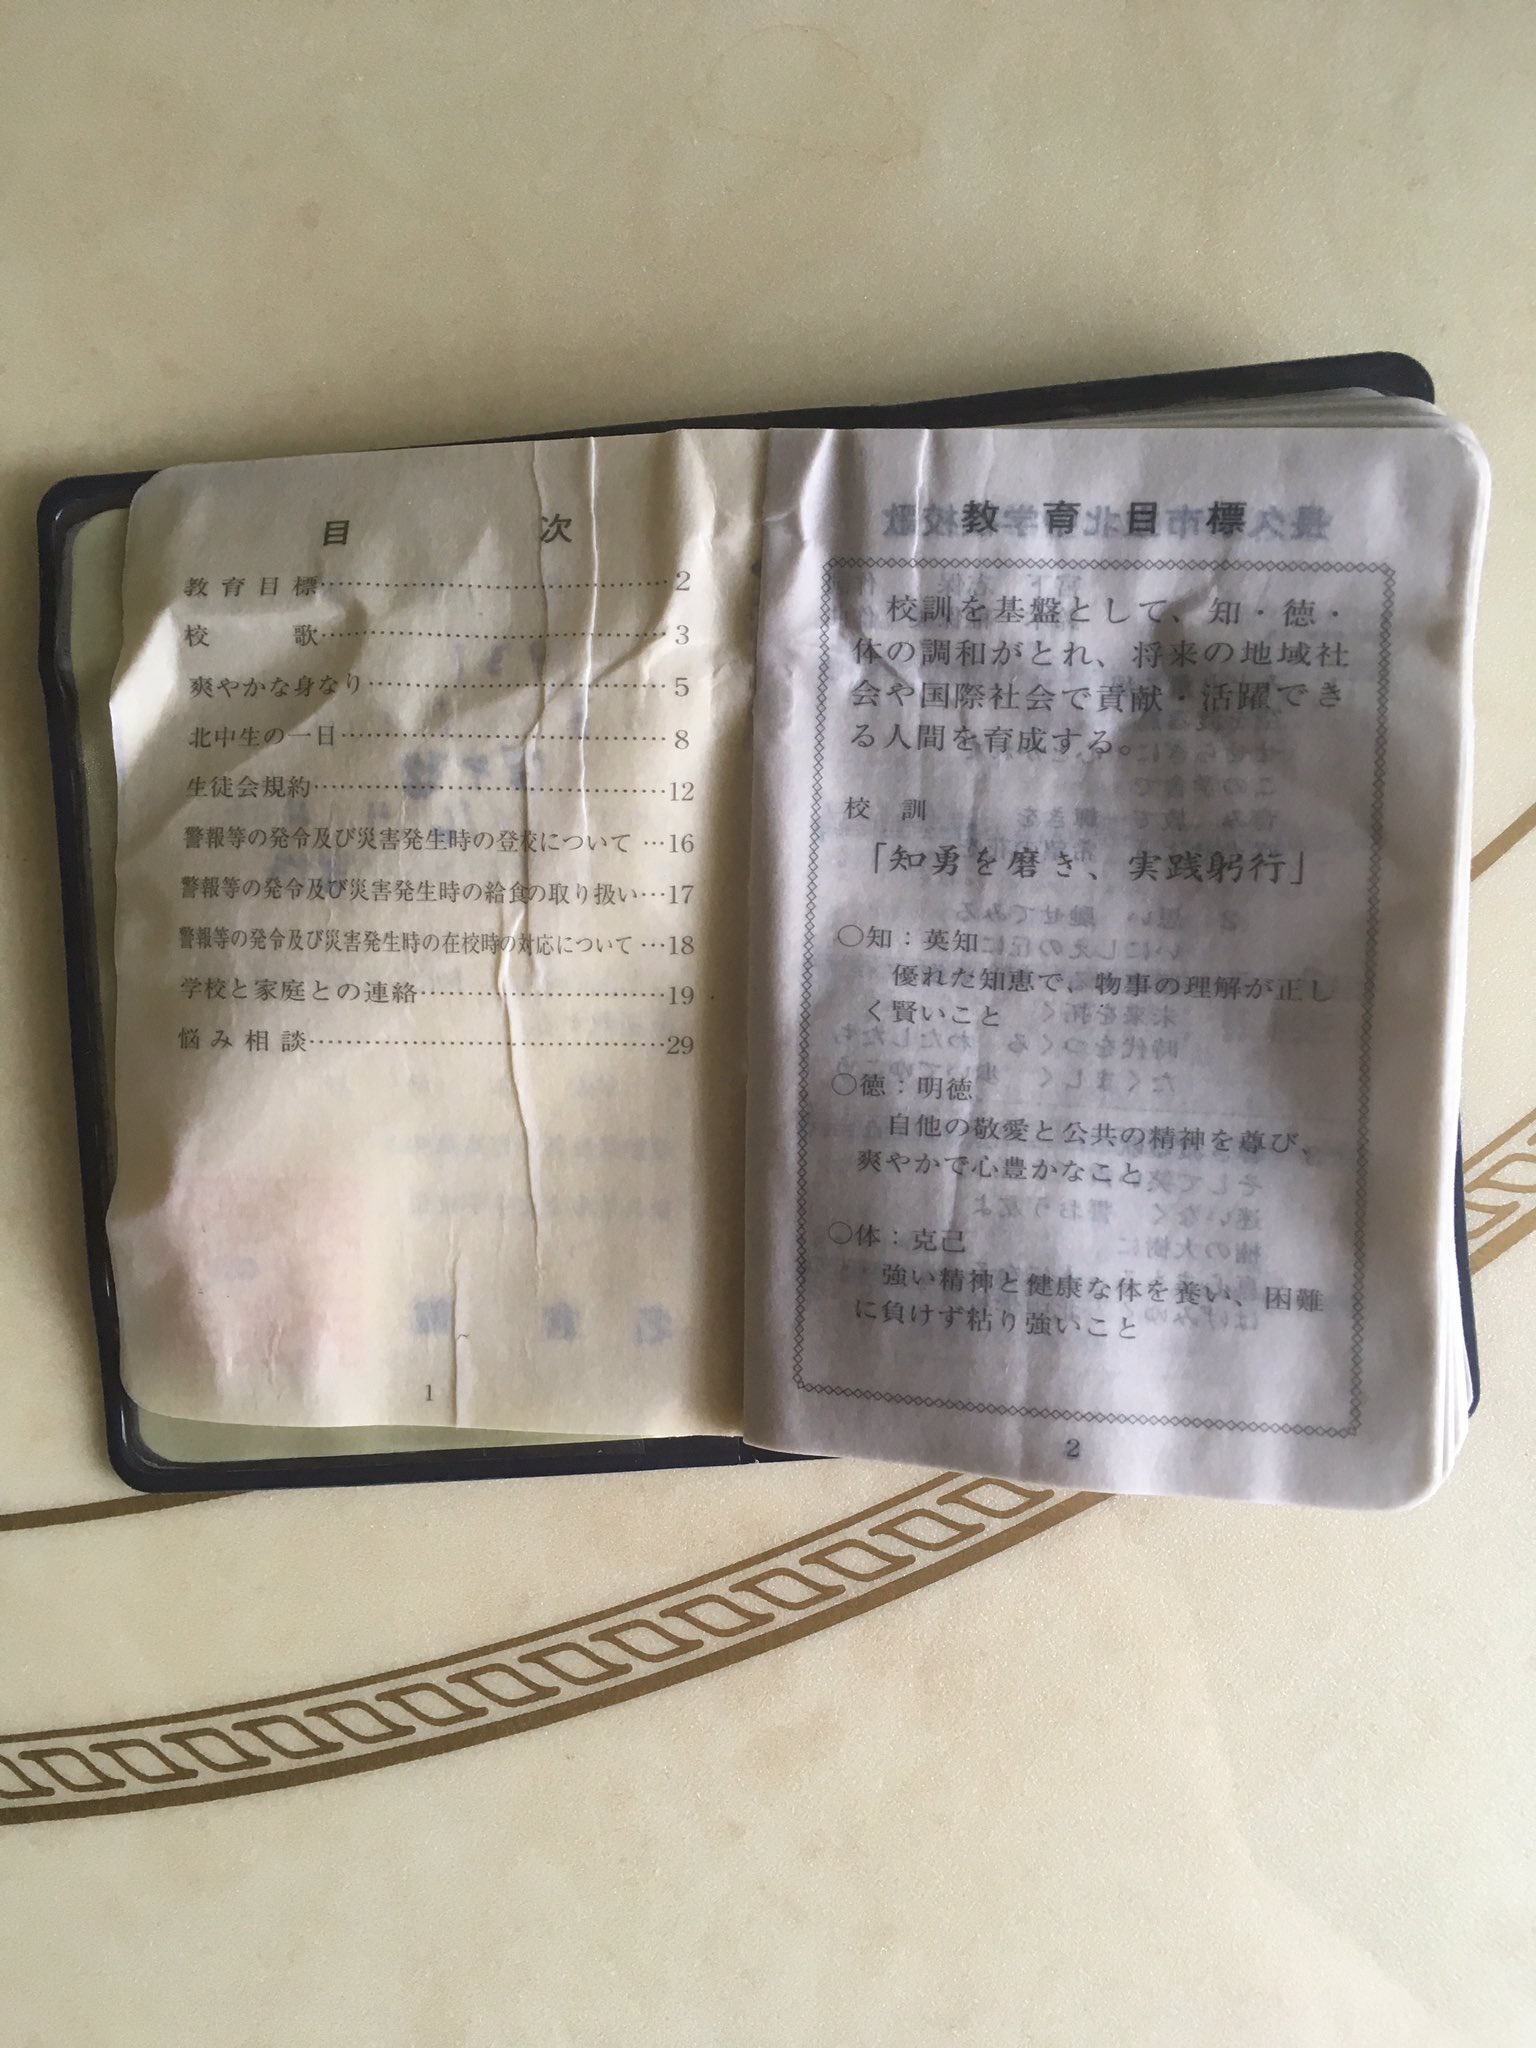 目次
教育目標……2
校歌……3
爽やかな身なり……5
北中生の一日……8
生徒会規約……12
警報等の発令及び災害発生時の登校について…16
警報等の発令及び災害発生時の給食の取り扱い…17
警報等の発令及び災害発生時の在校時の対応について…18
学校と家庭との連絡……19
悩み相談……29
1
教育目標
校訓を基盤として、知・徳・
体の調和がとれ、将来の地域社
会や国際社会で貢献・活躍でき
る人間を育成する。
校訓
「知勇を磨き、実践躬行」
○知:英知
優れた知恵で、物事の理解が正し
く賢いこと
○徳:明徳
自他の敬愛と公共の精神を尊び、
爽やかで心豊かなこと
○体:克己
強い精神と健康な体を養い、困難
に負けず粘り強いこと
2